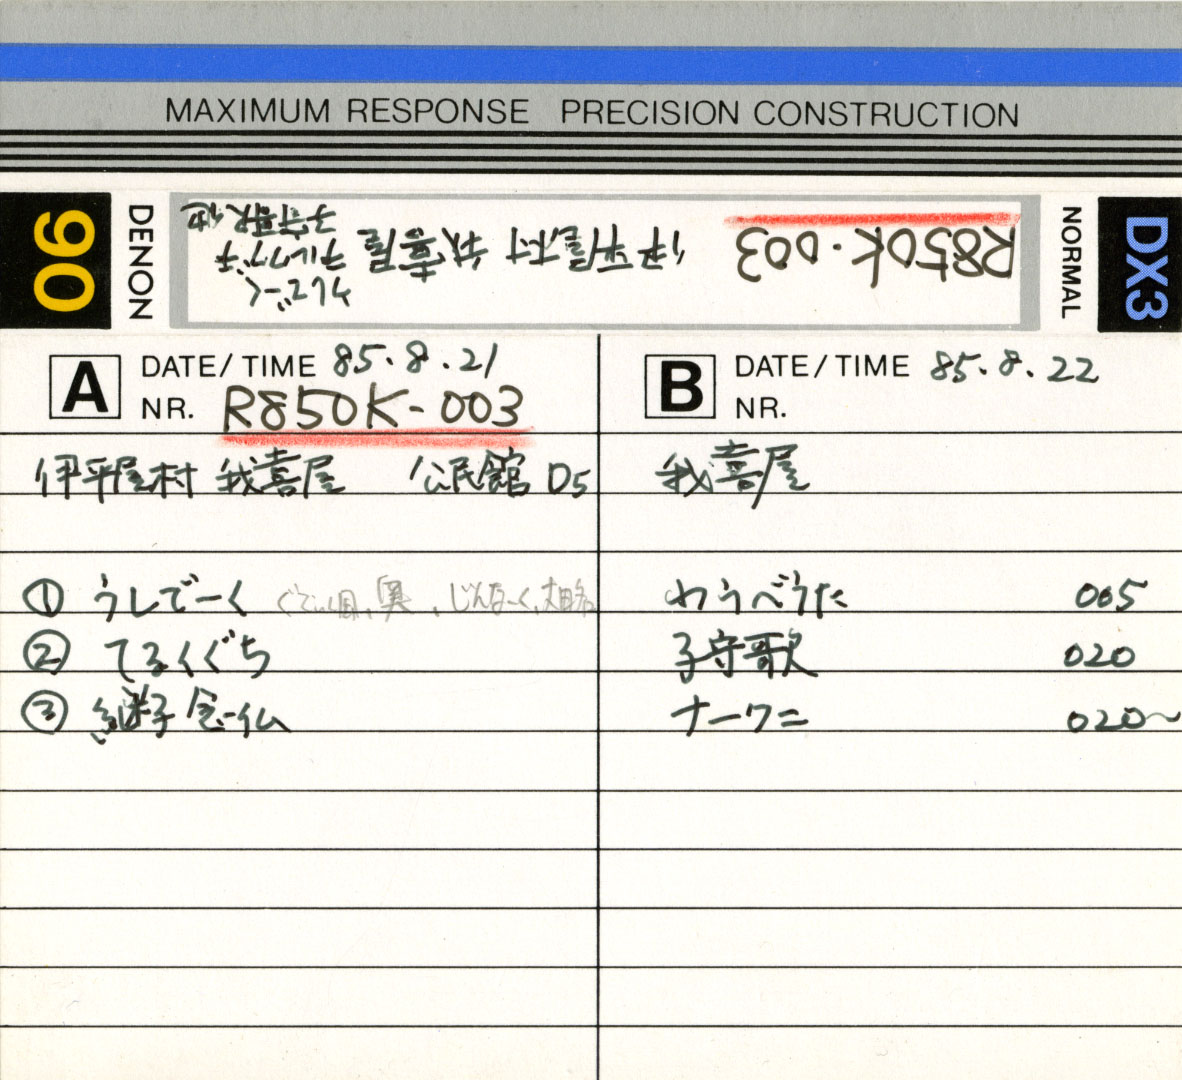 MAXIMUM RESPONSE PRECISION CONSTRUCTION
90
DENON
R850K-003
伊平屋村 我喜屋
ウしでーく
テルクグチ
子守歌 他
NORMAL
DX3
A DATE/TIME 85.8.21
NR. R850K-003
伊平屋村 我喜屋 公民館 D5
① うしでーく
② てるくぐち
③ 継子念仏
B DATE/TIME 85.8.22
NR.
我喜屋
わらべうた 005
子守歌 020
ナークニ 020~